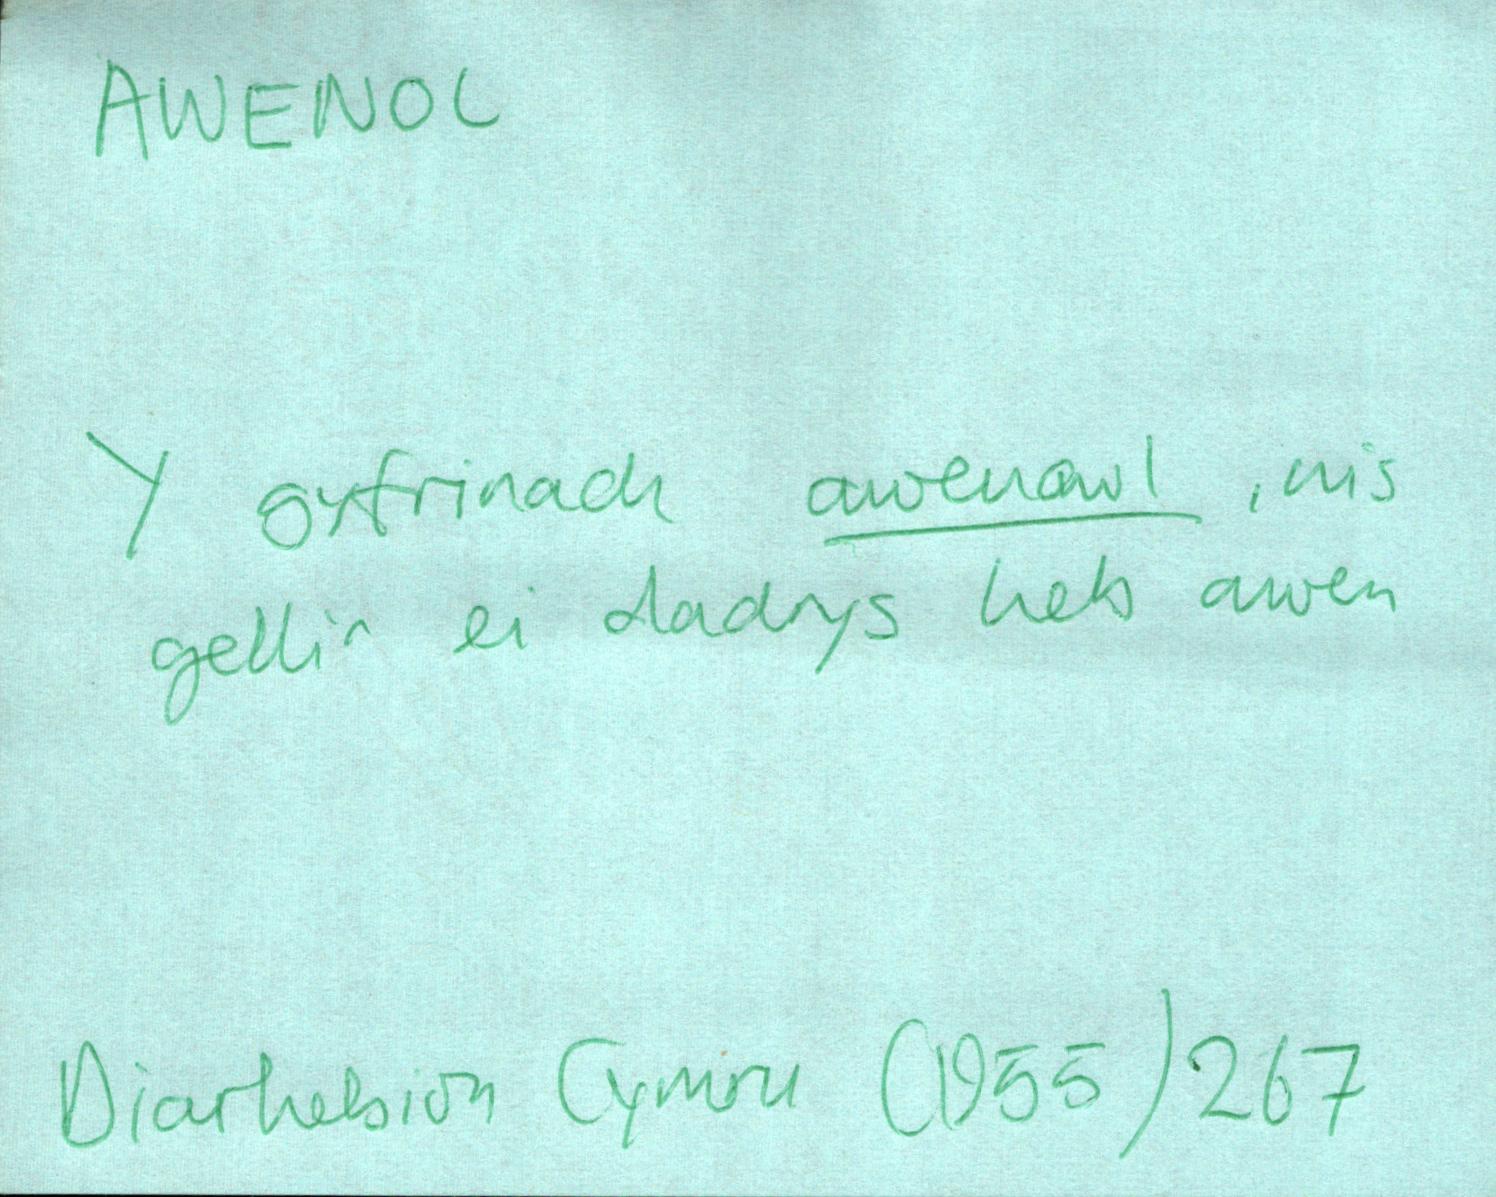 AWENOL
Y gyfrinach awenawl, nis
gellir ei dadrys heb awen
Diarhebion Cymru (1955) 267